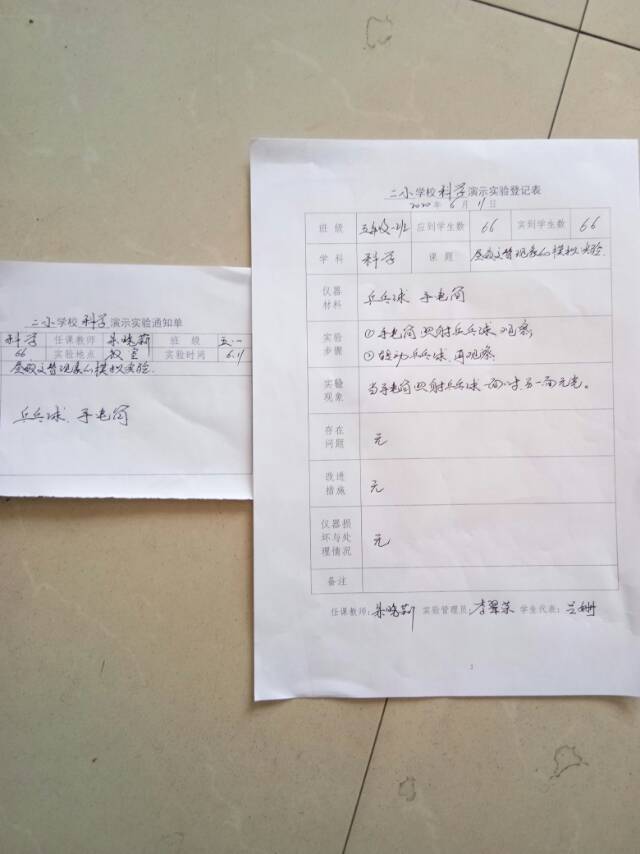 二小学校科学演示实验通知单
科学 任课教师 朱晓莉 班级 五.一
66 实验地点 教室 实验时间 6.11
昼夜交替现象的模拟实验.
乒乓球、手电筒
二小学校科学演示实验登记表
2020年6月11日
班级 五年级一班 应到学生数 66 实到学生数 66
学科 科学 课题 昼夜交替现象的模拟实验.
仪器
材料
乒乓球 手电筒
实验
步骤
①手电筒照射乒乓球观察
②转动乒乓球,再观察
实验
现象
当手电筒照射乒乓球一面时另一面无光。
存在
问题
无
改进
措施
无
仪器损
坏与处
理情况
无
备注
任课教师:朱晓莉 实验管理员:李翠荣 学生代表: